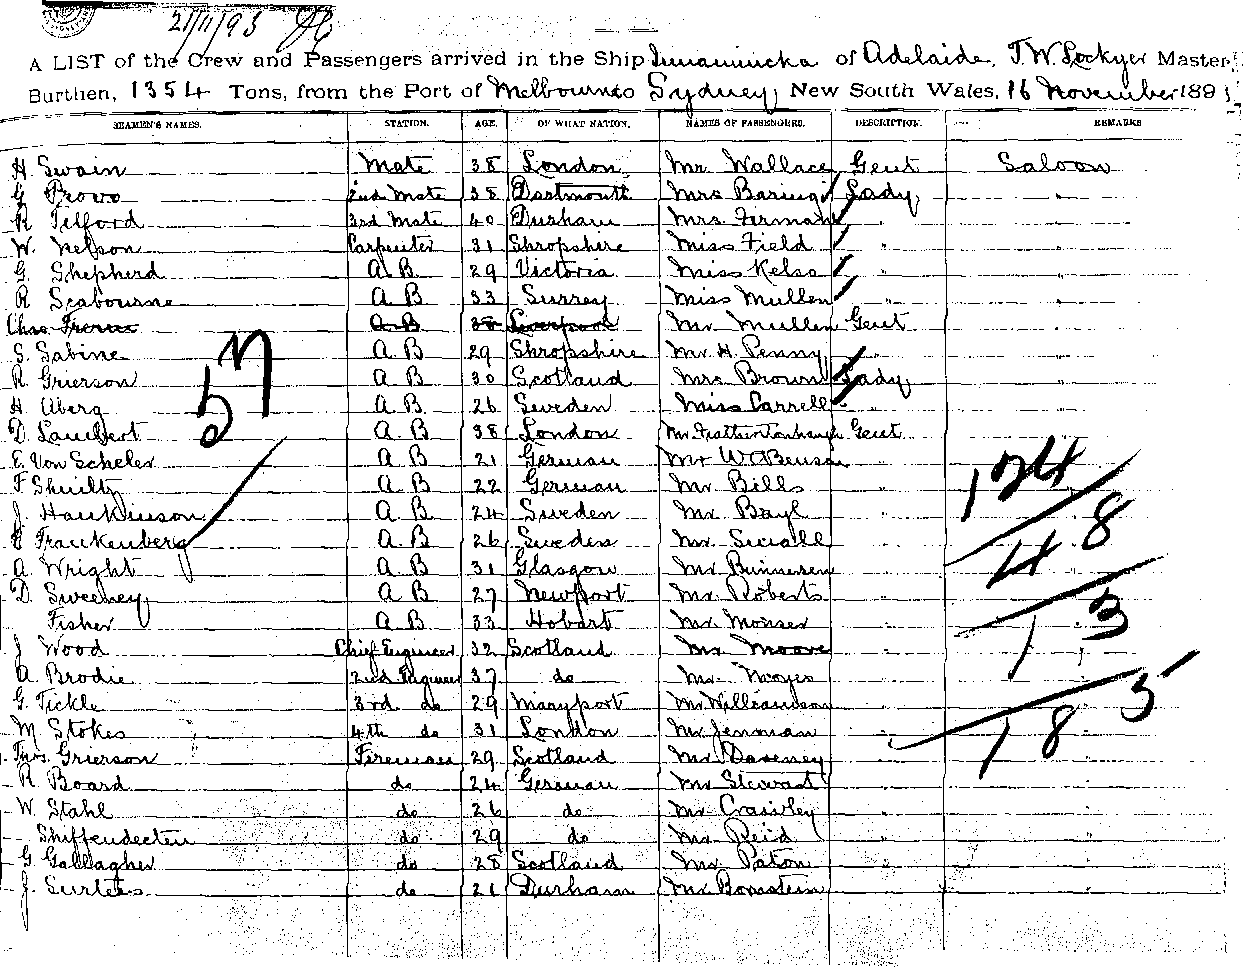 21/11/93
A LIST of the Crew and Passengers arrived in the Ship Innamincka of Adelaide, T. W. Lockyer Master,
Burthen, 1354 Tons, from the Port of Melbourne to Sydney, New South Wales, 16 November 1893
SEAMEN'S NAMES. STATION. AGE. OF WHAT NATION. NAMES OF PASSENGERS. DESCRIPTION. REMARKS
H Swain Mate 38 London Mr Wallace Gent Saloon
G Provo 2nd Mate 38 Dartmouth Mrs Baring Lady "
R Telford 3rd Mate 40 Durham Mrs Firman " "
W. Nelson Carpenter 31 Shropshire Miss Field " "
G Shepherd A B 29 Victoria Miss Kelso " "
R Seabourne A B 33 Surrey Miss Mullen " "
Chas A B 38 Liverpool Mr Mullen Gent "
S. Sabine A B 29 Shropshire Mr H. Penny " "
R Grierson A B 30 Scotland Mrs Brown Lady "
H Aberg A B 26 Sweden Miss Carrell " "
D. Lambert A. B 38 London Mr Gent "
E. Von Scheler A B 21 German Mr W Benson "
F Shultz A B 22 German Mr Bills "
J. A B 24 Sweden Mr Bayl "
Frankenberg A. B 26 Sweden Mr. "
A. Wright A B 31 Glasgow Mr "
D. Sweeney A B 27 Newport Mr Roberts "
Fisher A B 33 Hobart Mr Monser "
J Wood Chief Engineer 32 Scotland Mr Moore "
A. Brodie 2nd Engineer 37 do Mr Noyes "
G. Tickle 3rd do 29 Maryport Mr Williamson "
M Stokes 4th do 31 London Mr Jenman "
Thos. Grierson Fireman 29 Scotland Mr Daveney "
R Board do 24 German Mr Stewart "
W. Stahl do 26 do Mr Crawley "
Shiffendecten do 29 do Mr Reid "
G Gallagher do 28 Scotland Mr Paton "
J. Surtees do 21 Durham Mr Bornstein "
57
124
48
13
185